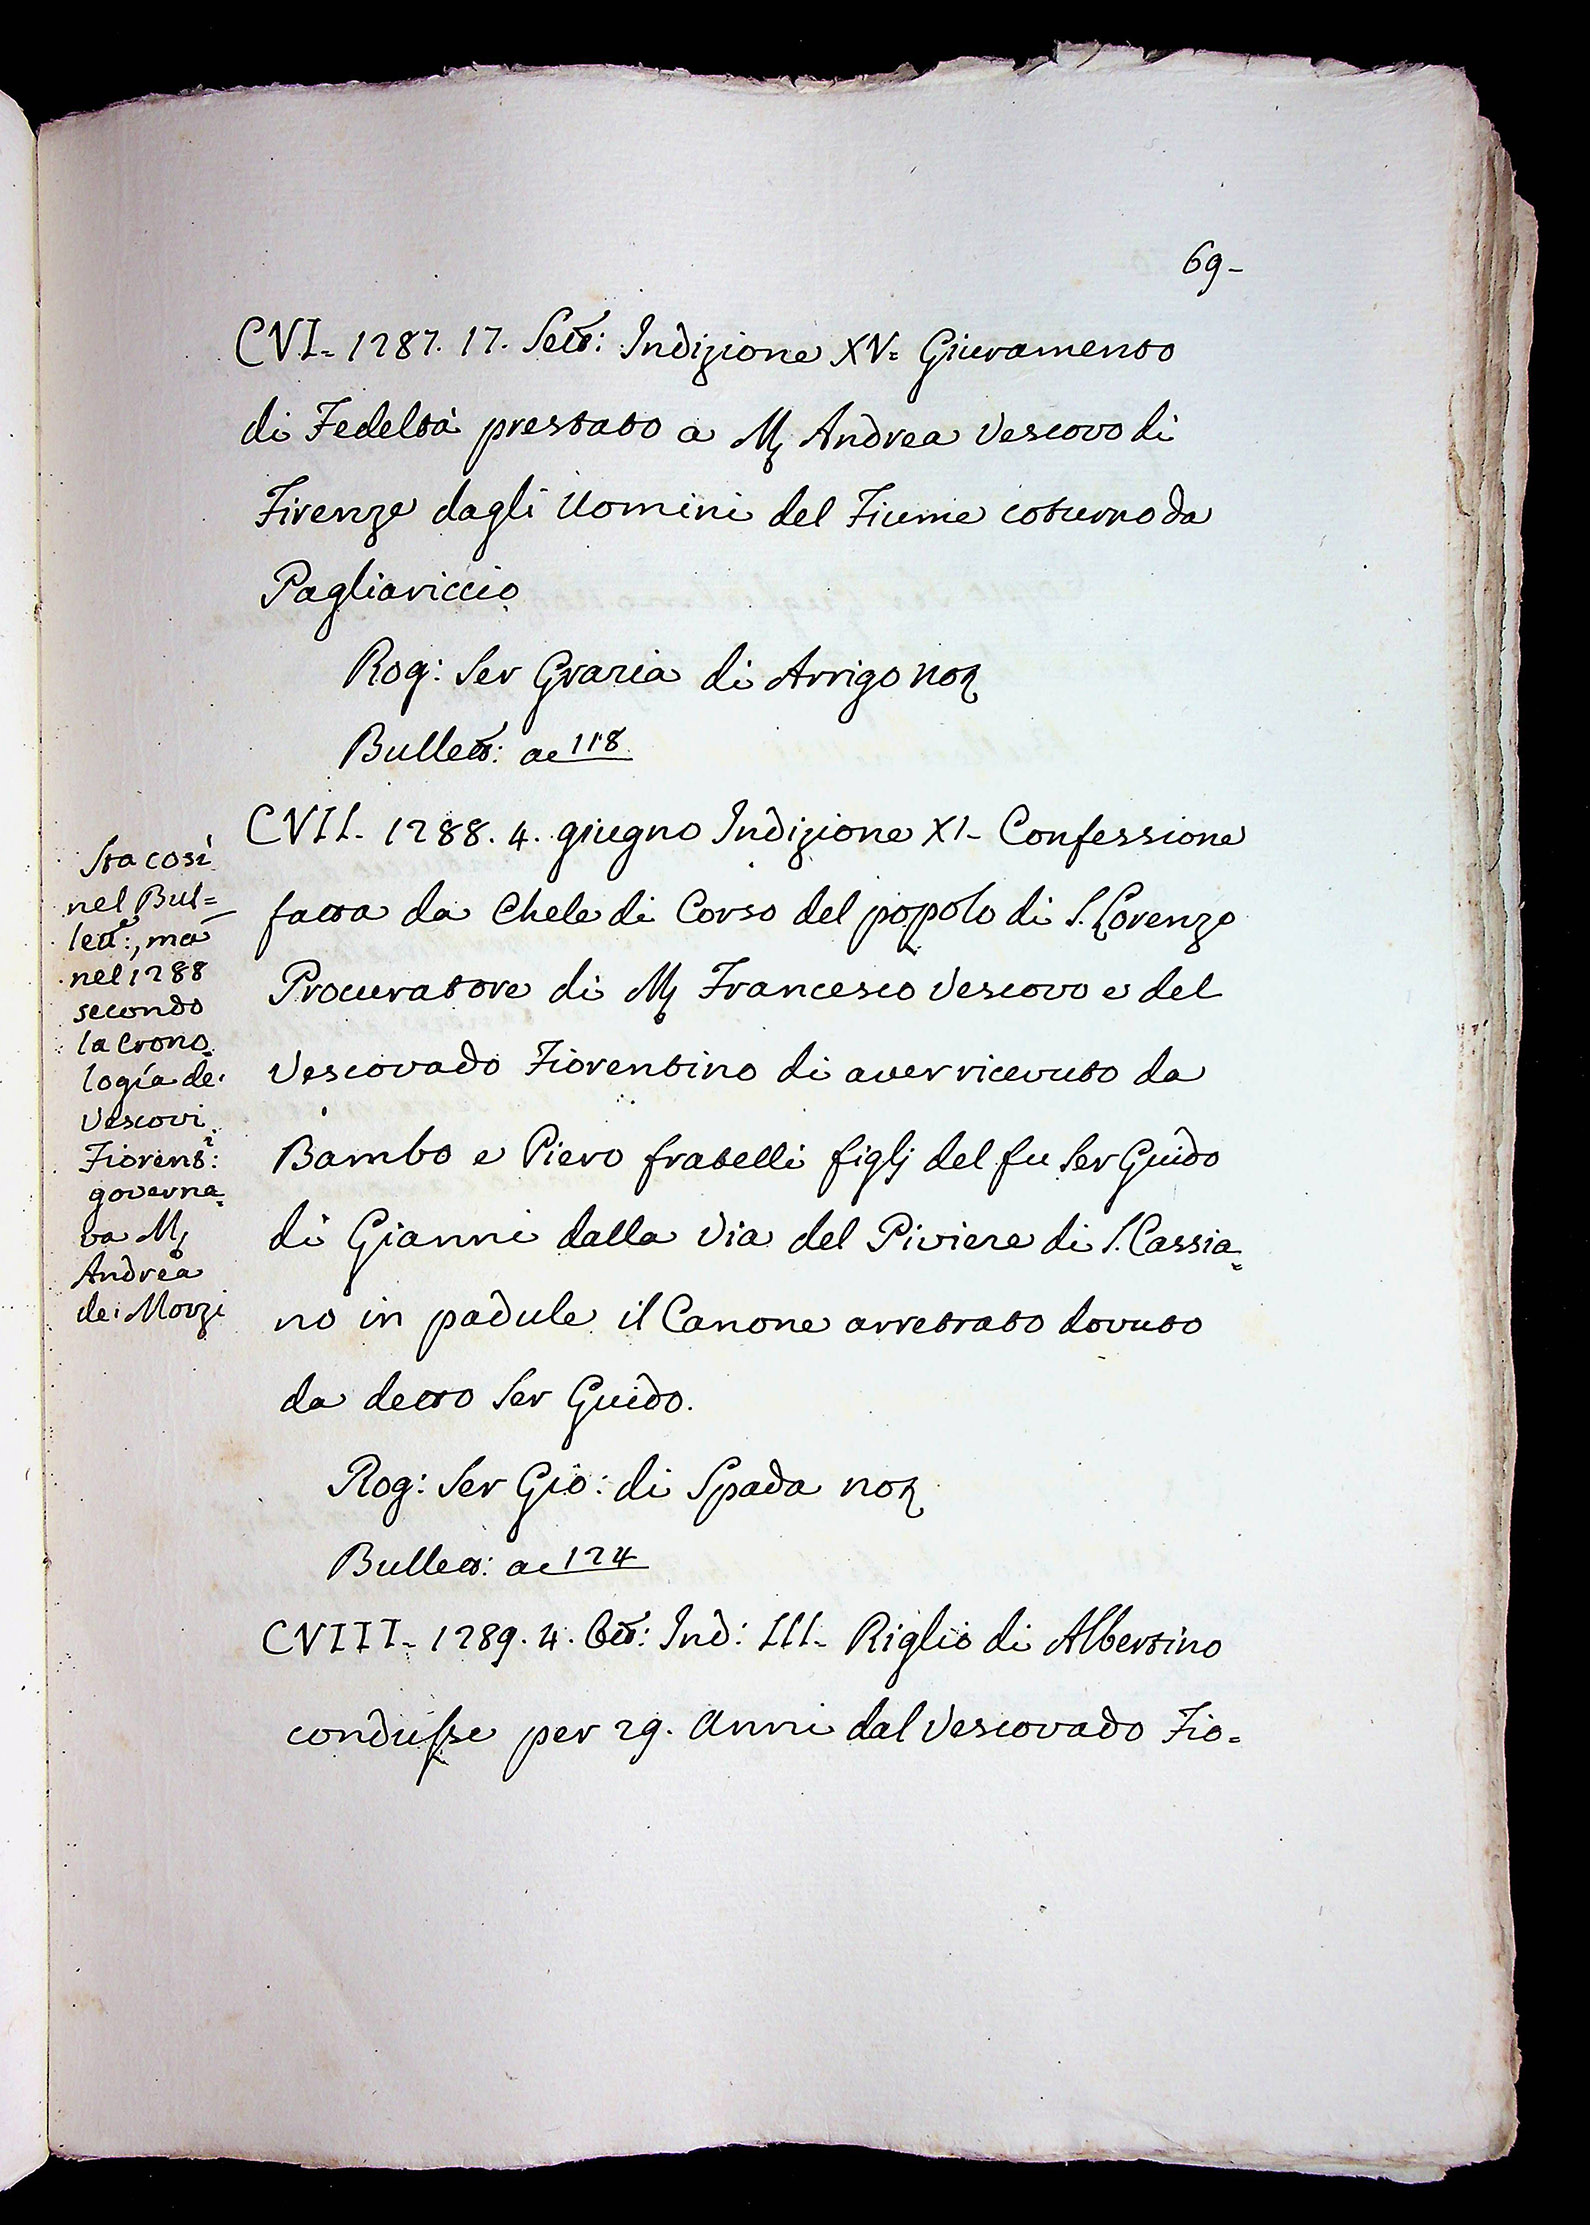 69-
CVI- 1287. 17. Sett: Indizione XV= Giuramento
di Fedeltà prestato a M Andrea Vescovo di
Firenze dagli Uomini del Fiume coturno da
Pagliariccio
Rog: Ser Grazia di Arrigo not
Bullett: ac 118
CVII- 1288. 4. giugno Indizione XI- Confessione
fatta da Chele di Corso del popolo di S. Lorenzo
Procuratore di M Francesco Vescovo e del
Vescovado Fiorentino di aver ricevuto da
Bambo e Piero fratelli figlj del fu Ser Guido
di Gianni dalla Via del Piviere di S. Cassia=
no in padule il Canone arretrato dovuto
da detto Ser Guido.
Rog: Ser Gio: di Spada not
Bullett: ac 124
CVIII- 1289. 4. Ott: Ind: III- Riglio di Albertino
condusse per 29. Anni dal Vescovado Fio=
Sta così
nel Bul=
lett:, ma
nel 1288
secondo
la Crono=
logia de'
Vescovi
Fiorent:
governa=
va M
Andrea
de' Mozzi